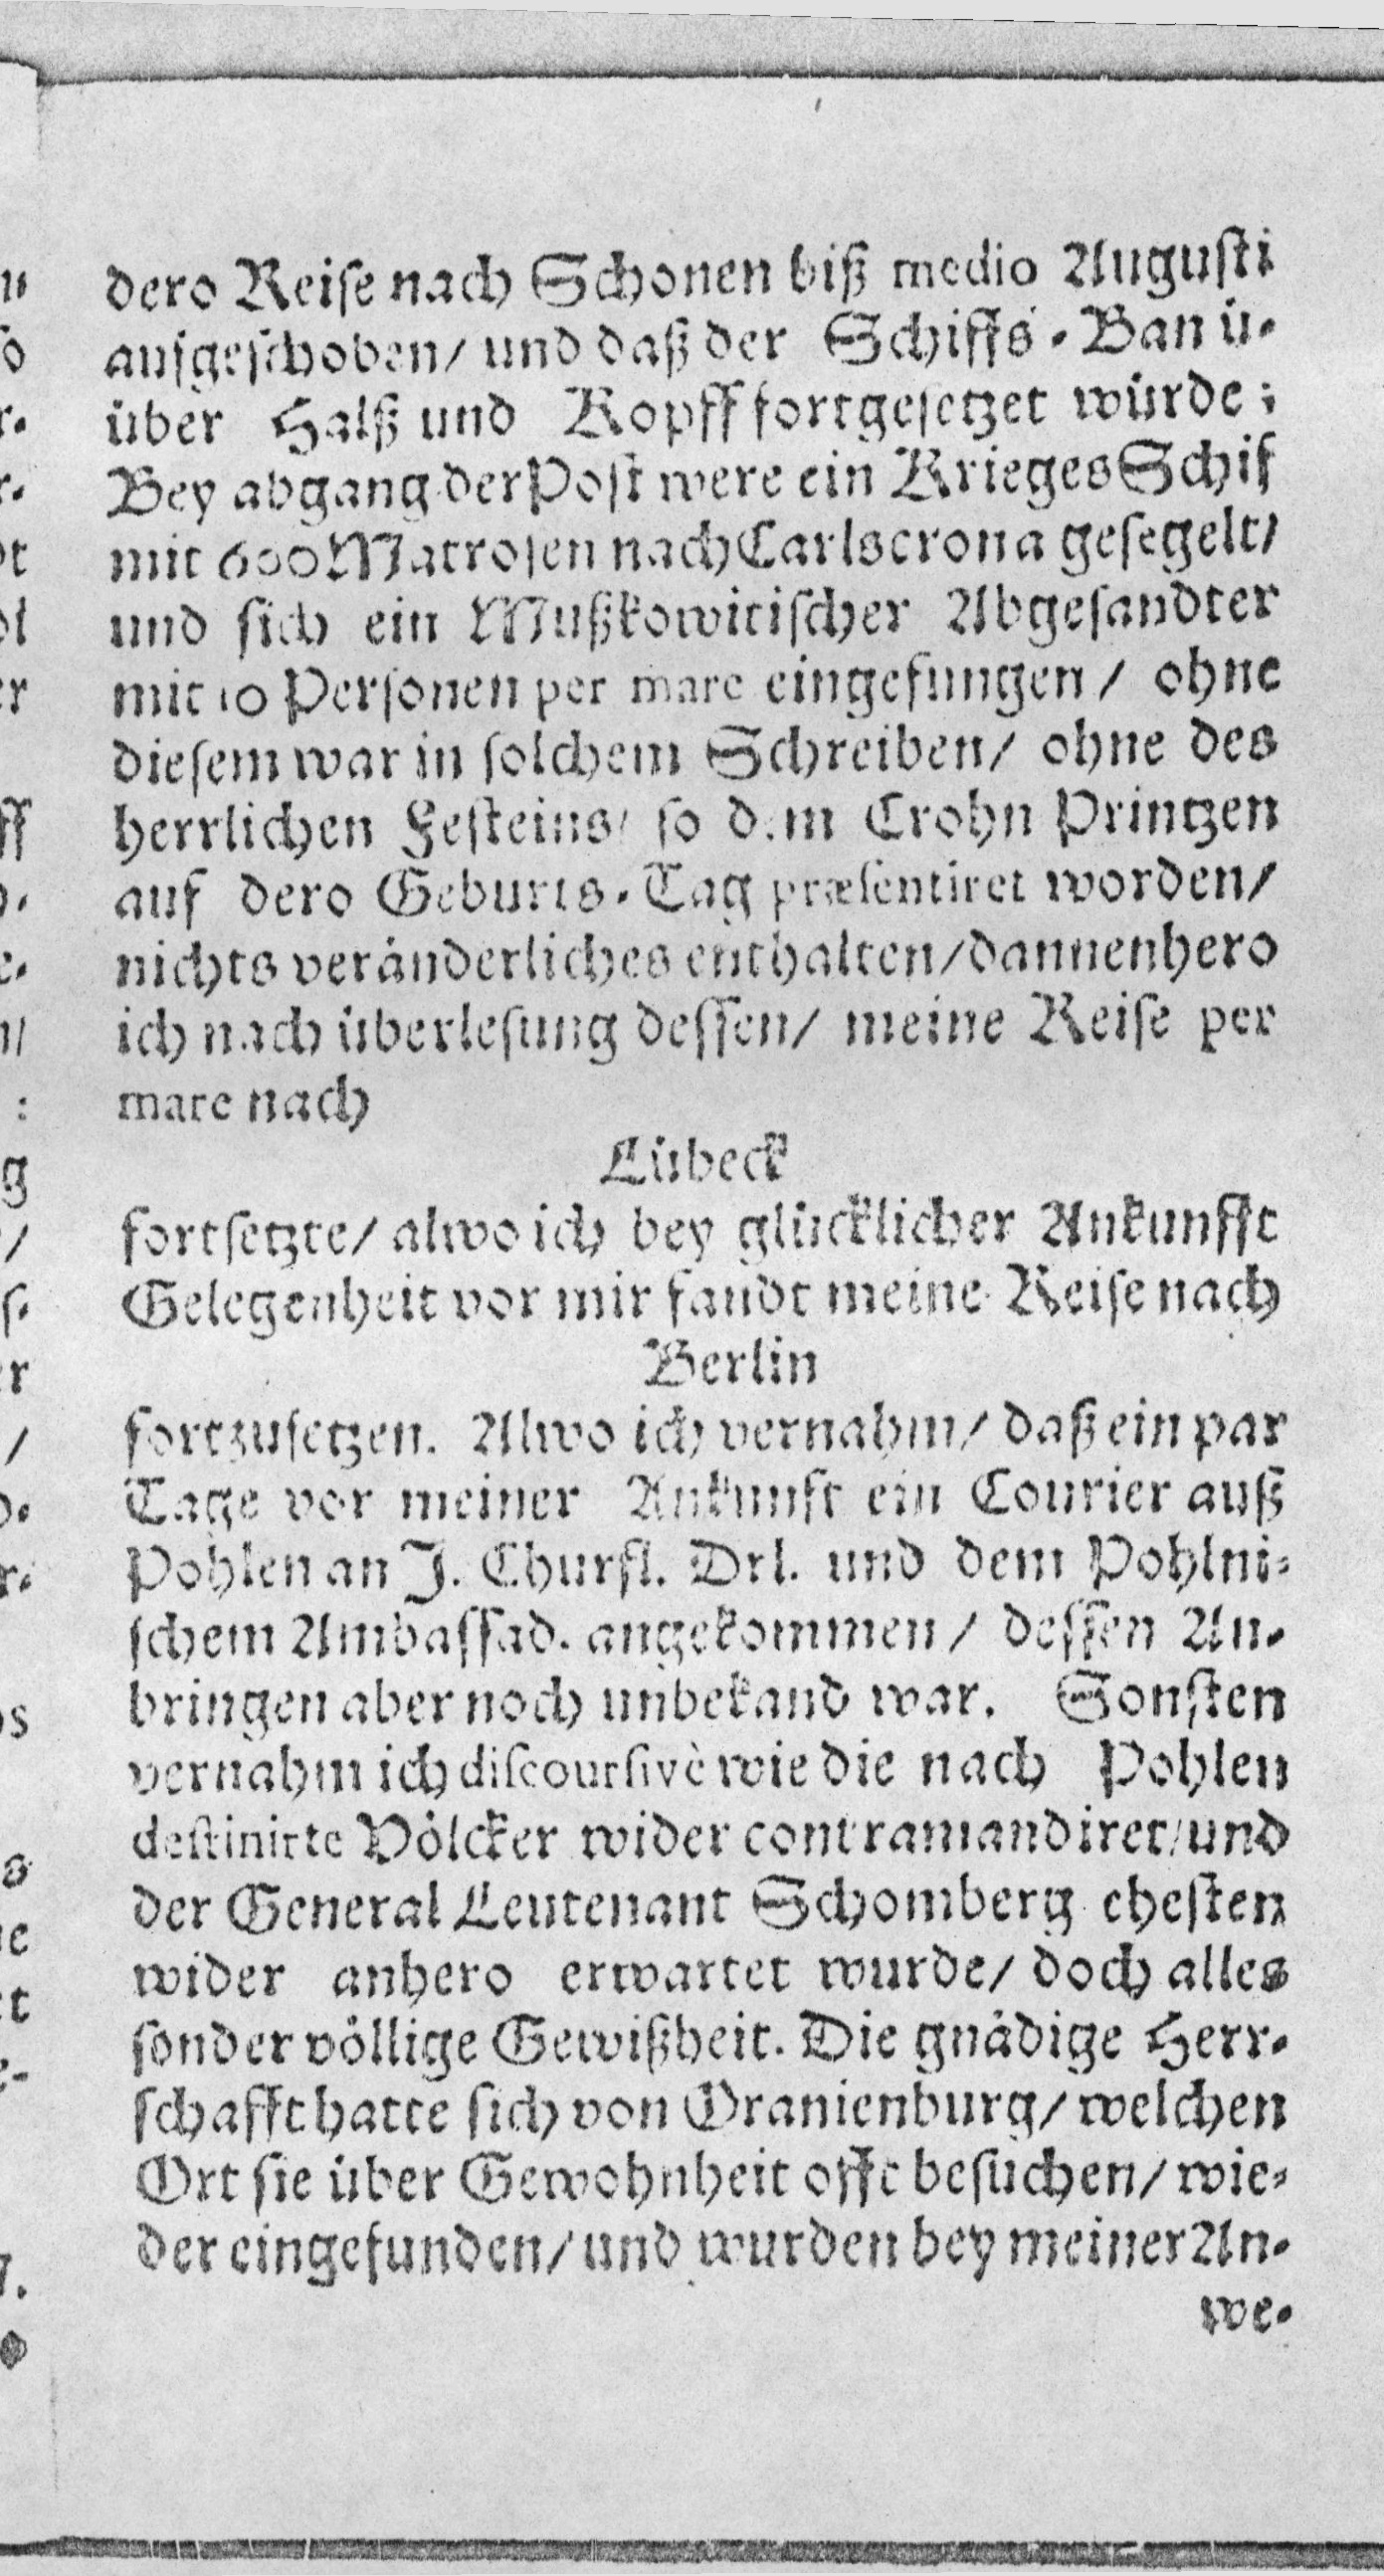 dero Reise nach Schonen biß medio Augusti
aufgeschoben/ und daß der Schiffs-Bau ü-
über Halß und Kopff fortgesetzet würde;
Bey abgang der Post were ein Krieges Schif
mit 600 Matrosen nach Carlscrona gesegelt/
und sich ein Mußkowitischer Abgesandter
mit 10 Personen per mare eingefungen/ ohne
diesem war in solchem Schreiben/ ohne des
herrlichen Festeins/ so dem Crohn Printzen
auf dero Geburts-Tag præsentiret worden/
nichts veränderliches enthalten/ dannenhero
ich nach überlesung dessen/ meine Reise per
mare nach
Lübeck
fortsetzte/ alwo ich bey glücklicher Ankunfft
Gelegenheit vor mir fandt meine Reise nach
Berlin
fortzusetzen. Alwo ich vernahm/ daß ein par
Tage vor meiner Ankunft ein Courier auß
Pohlen an J. Churfl. Drl. und dem Pohlni-
schem Ambassad. angekommen/ dessen An-
bringen aber noch unbekand war. Sonsten
vernahm ich discoursivè wie die nach Pohlen
destinirte Völcker wider contramandiret/ und
der General Leutenant Schomberg ehesten
wider anhero erwartet wurde/ doch alles
sonder völlige Gewißheit. Die gnädige Herr-
schafft hatte sich von Oranienburg/ welchen
Ort sie über Gewohnheit offt besuchen/ wie-
der eingefunden/ und wurden bey meiner An-
we-